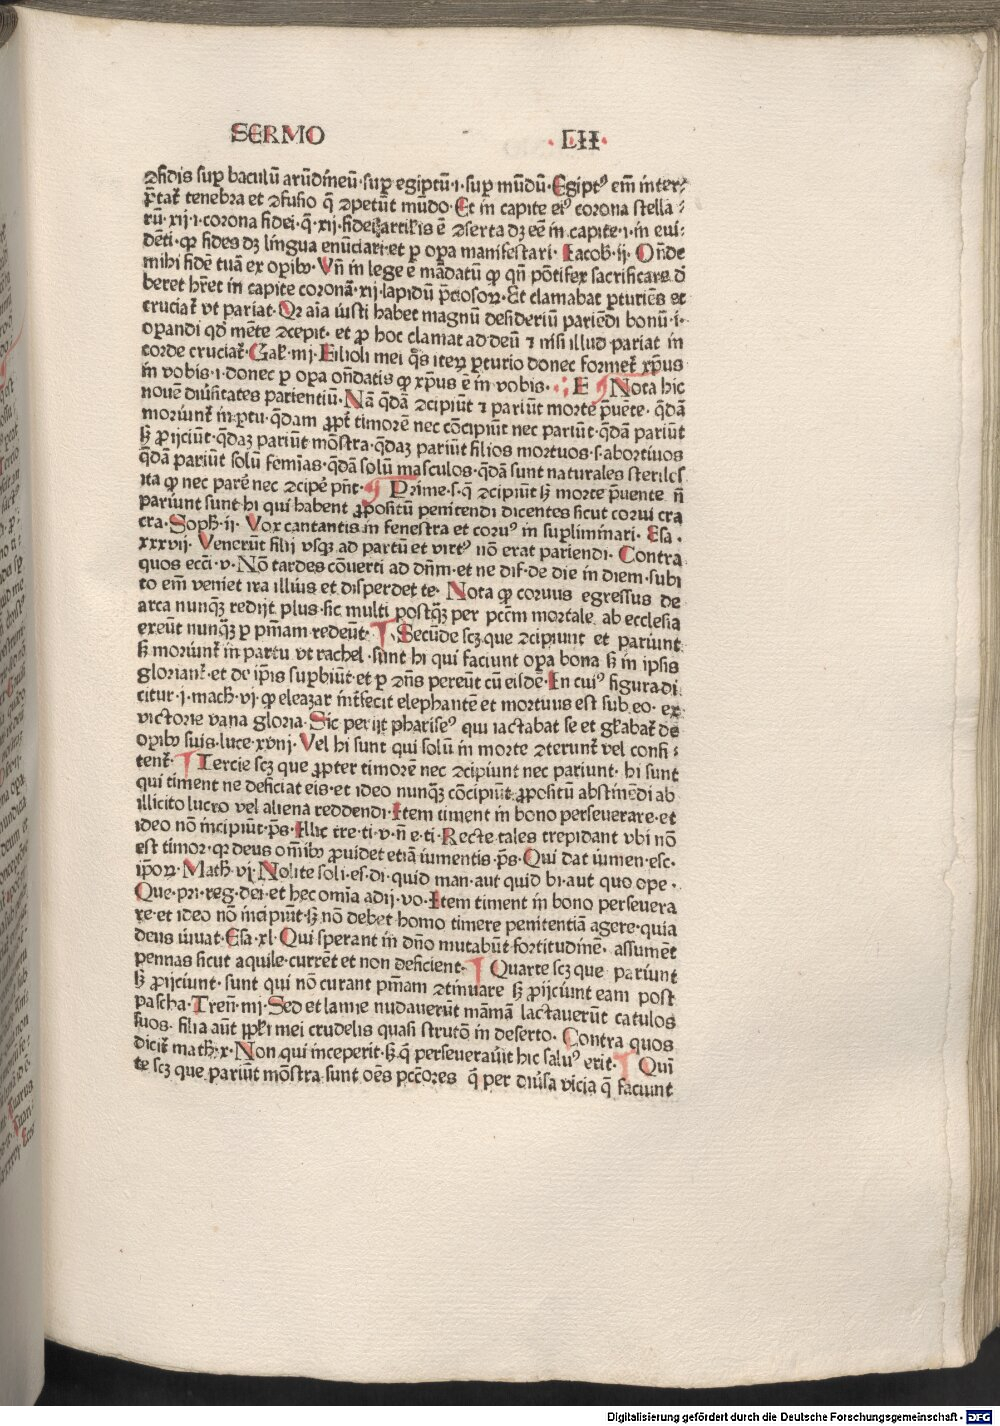 SERMO ·LII·
ꝯfidis sup baculū arūdīneū·sup egiptū·i·sup mūdū·Egiptꝰ em̄ inter⸗
p̄tat᷑ tenebra et ꝯfusio q̄ ꝯpetūt mūdo·Et in capite eiꝰ corona stella⸗
rū·xij·i·corona fidei·q̄·xij·fidei articlis ē ꝯserta dꝫ eē in capite·i·in eui⸗
dēti·ꝙ fides dꝫ lingua enūciari·et ꝑ oꝑa manifestari·Iacob·ij·Onde
mihi fidē tuā ex oꝑibꝰ·Vn̄ in lege ē mādatū ꝙ qn̄ pōtifex sacrificare d̄
beret hr̄et in capite coronā·xij·lapidū p̄ciosoꝝ·Et clamabat ꝑturiēs et
cruciat᷑ vt pariat·Qꝛ aīa iusti habet magnū desideriū pariēdi bonū·i·
oꝑandi qd mēte ꝯcepit·et ꝓ hoc clamat ad deū ⁊ nisi illud pariat in
corde cruciat᷑·Gal·iiij·Filioli mei q̄s iteꝝ ꝑturio donec formet᷑ xp̄us
in vobis·i·donec ꝑ oꝑa on̄datis ꝙ xp̄us ē in vobis· E ¶ Nota hic
nouē diūsitates parientiū·Nā q̄dā ꝯcipiūt ⁊ pariūt morte p̄uēte·q̄dā
moriunt᷑ in ꝑtu·q̄dam ꝓpt᷑ timorē nec cōcipiūt nec pariūt·q̄dā pariūt
sꝫ ꝓijciūt·q̄daꝫ pariūt mōstra·q̄daꝫ pariūt filios mortuos·s·abortiuos
q̄dā pariūt solū femīas·q̄dā solū masculos·q̄dā sunt naturales steriles
ita ꝙ nec parē nec ꝯciꝑe pn̄t·¶ Prime·s·q̄ ꝯcipiūt sꝫ morte p̄uente n̄
pariunt sunt hi qui habent ꝓpositū penitendi dicentes sicut corui cra
cra·Soph·ij·Vox cantantis in fenestra et coruꝰ in supliminari·Esa·
xxxvij·Venerūt filij vsqꝫ ad partū et virtꝰ nō erat pariendi·Contra
quos ecci·v·Nō tardes cōuerti ad dn̄m·et ne dif·de die in diem·subi
to em̄ veniet ira illius et disperdet te·Nota ꝙ coruus egressus de
arca nunqꝫ redijt plus·sic multi postqꝫ per pccm̄ mortale ab ecclesia
exeūt nunqꝫ ꝑ pn̄iam redeūt·¶ Secūde scꝫ que ꝯcipiunt et pariunt
sꝫ moriunt᷑ in partu vt rachel·sunt hi qui faciunt oꝑa bona sꝫ in ipsis
gloriant᷑·et de ip̄is supbiūt·et ꝑ ꝯn̄s pereūt cū eisdē·In cuiꝰ figura di
citur·j·mach·vj·ꝙ eleazar int᷑fecit elephantē et mortuus est sub eo·ex
victorie vana gloria·Sic perijt phariseꝰ qui iactabat se et gl᷑abat᷑ de
oꝑibꝰ suis·luce·xviij·Vel hi sunt qui solū in morte ꝯterunt᷑ vel confi⸗
tent᷑·¶ Tercie scꝫ que ꝓpter timorē nec ꝯcipiunt nec pariunt·hi sunt
qui timent ne deficiat eis·et ideo nunqꝫ cōcipiūt ꝓpositū abstinēdi ab
illicito lucro vel aliena reddendi·Item timent in bono perseuerare·et
ideo nō incipiūt·ps·Illic tre·ti·v·n̄ e·ti·Recte tales trepidant vbi nō
est timor·qꝛ deus om̄ibꝰ ꝓuidet etiā iumentis·ps·Qui dat iumen·esc·
ip̄oꝝ·Math·vj·Nolite soli·es·di·quid man·aut quid bi·aut quo ope·
Que·pri·reg·dei·et hec omīa adij·vo·Item timent in bono perseuera
re·et ideo nō incipiūt·sꝫ nō debet homo timere penitentiā agere·quia
deus iuuat·Esa·xl·Qui sperant in dn̄o mutabūt fortitudinē·assumēt
pennas sicut aquile·currēt et non deficient·¶ Quarte scꝫ que pariunt
sꝫ ꝓijciunt·sunt qui nō curant pn̄iam ꝯtinuare sꝫ ꝓijciunt eam post
pascha·Tren·iiij·Sed et lamie nudauerūt māmā lactauerūt catulos
suos·filia aūt ppl᷑i mei crudelis quasi strutō in deserto·Contra quos
dicit᷑ math·x·Non qui inceperit·sꝫ q̄ perseuerauit hic saluꝰ erit·¶ Qui
te scꝫ que pariūt mōstra sunt oēs pcc̄ores q̄ per diūsa vicia q̄ faciunt
Digitalisierung gefördert durch die Deutsche Forschungsgemeinschaft - DFG